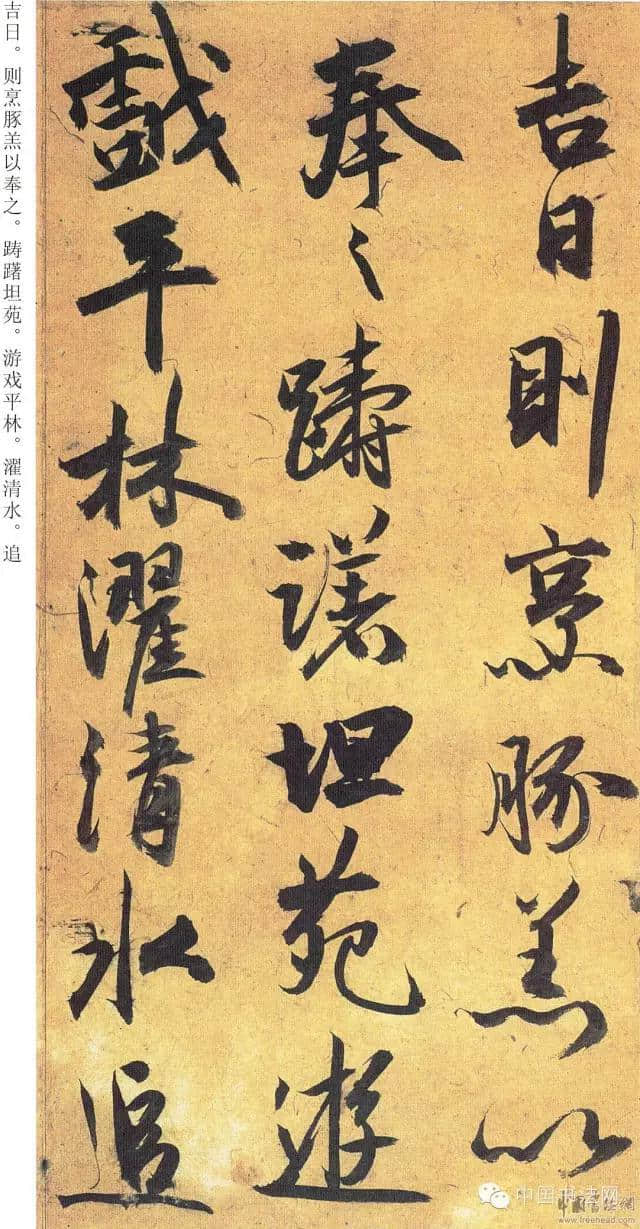 吉日則烹豚羔以
奉之躊躇坦苑遊
戲平林濯清水追
吉日。则烹豚羔以奉之。踌躇坦苑。游戏平林。濯清水。追
中国书法网
中国书法网
www.freehead.com